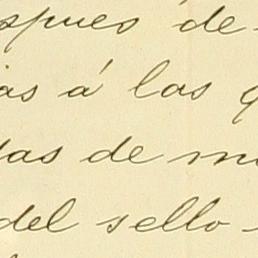 spues de
as á las
das de
del sello